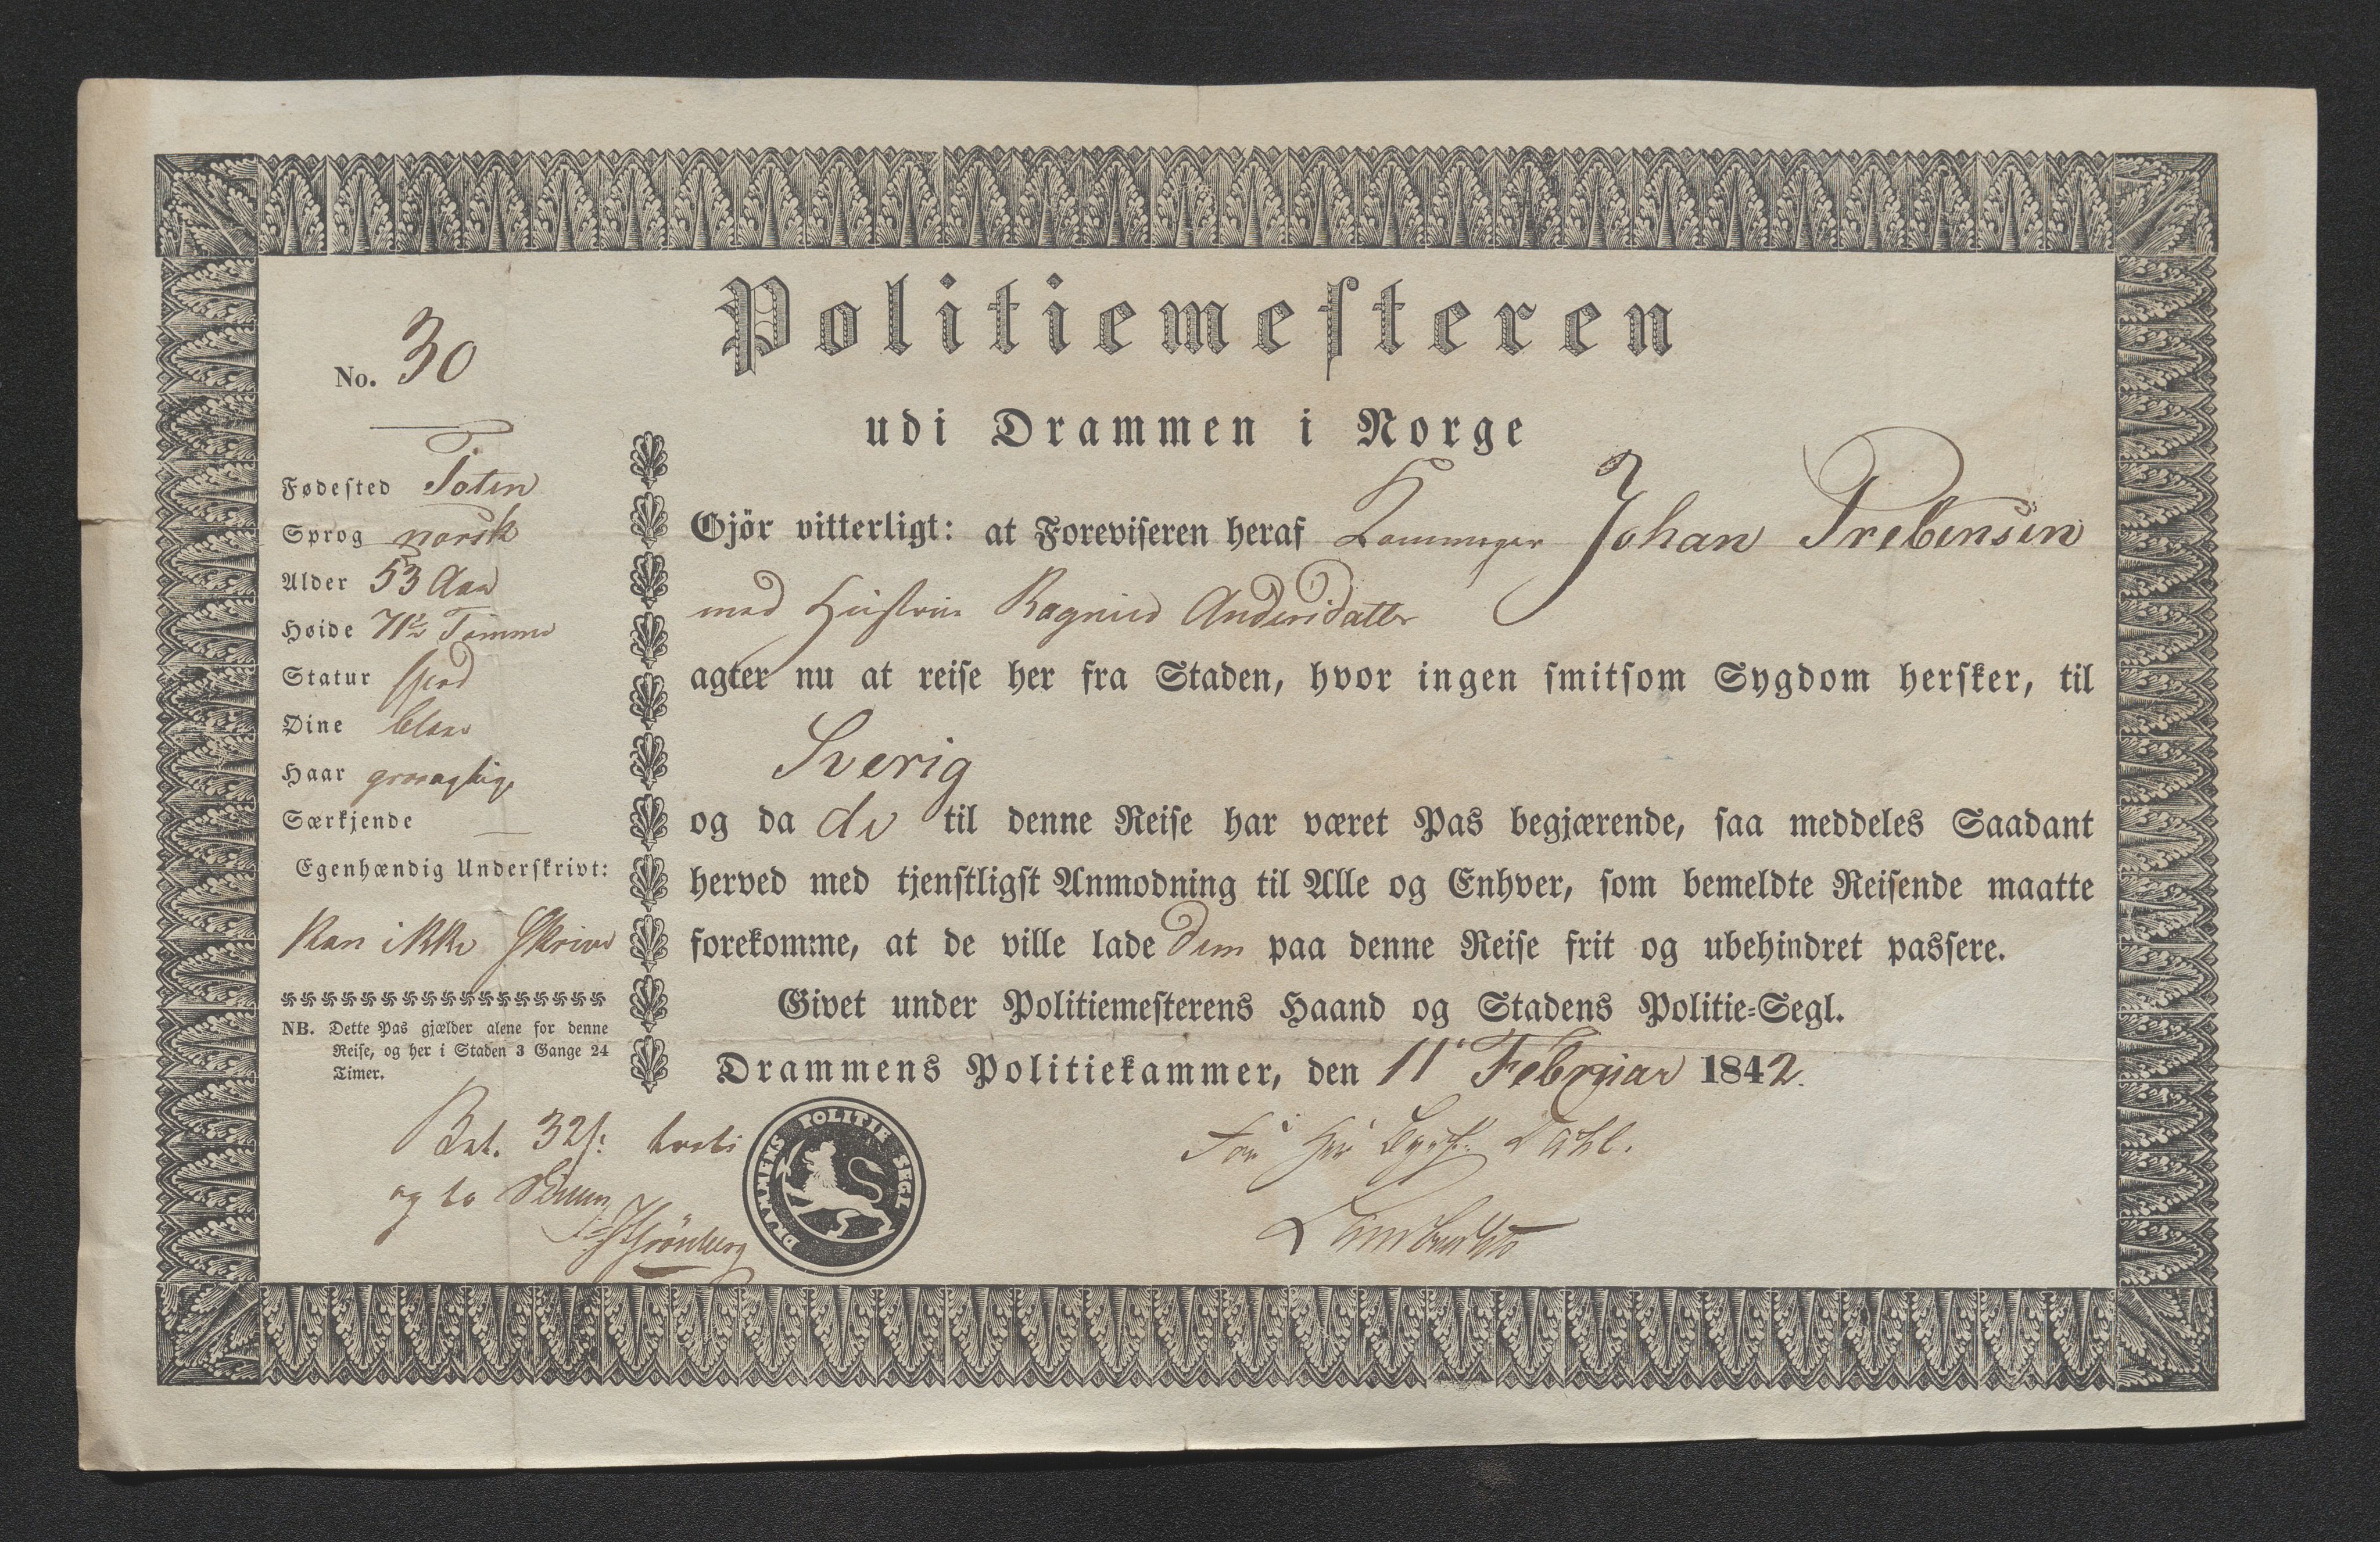 Politiemesteren
udi Drammen i Norge
No. 30
Fødested Toten
Sprog norsk
Alder 53 Aar
Høide 71½ Tomme
Statur spæd
Øine blaae
Haar graaagtigt
Særkjende —
Egenhændig Underskrivt:
Kan ikke Skrive
NB. Dette Pas gjælder alene for denne
Reise, og her i Staden 3 Gange 24
Timer.
Gjör vitterligt: at Foreviseren heraf Johan Prebensen
med Hustrue Ragnild Andersdatter
agter nu at reise her fra Staden, hvor ingen smitsom Sygdom hersker, til
Sverig
og da de til denne Reise har været Pas begjærende, saa meddeles Saadant
herved med tjenstligst Anmodning til Alle og Enhver, som bemeldte Reisende maatte
forekomme, at de ville lade dem paa denne Reise frit og ubehindret passere.
Givet under Politiemesterens Haand og Stadens Politie-Segl.
Drammens Politiekammer, den 11 Februar 1842.
Bet. 32 s: treti
og to
Grönberg
DRAMMENS POLITIE SEGL
For Hr Dahl.